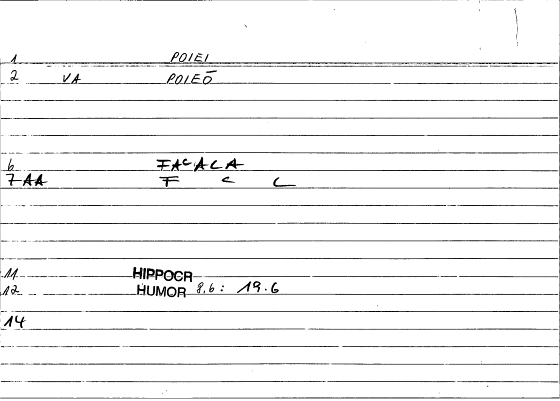 1 POIEI
2 VA POIEŌ
6 FACALA
7 AA F C L
11 HIPPOCR
12 HUMOR 8,6: 19.6
14